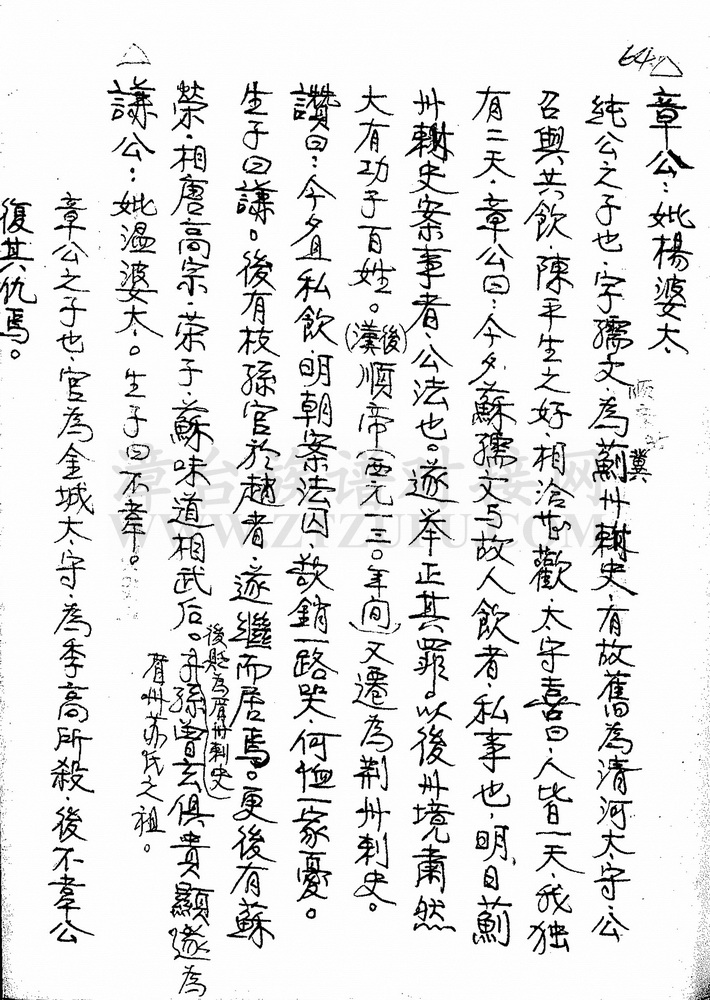 64
章公：妣楊婆太．
純公之子也．字孺文．為薊冀州刺史．有故舊為清河太守．公
召與共飲．陳平生之好．相洽甚歡．太守喜曰．人皆一天．我独
有二天．章公曰．今夕蘇孺文与故人飲者．私事也．明日薊
州刺史案事者．公法也。遂举正其罪。以後州境肅然
大有功于百姓。(後漢)順帝(西元一三○年间)又遷為荆州刺史。
讚曰：今宵私飲．明朝案法囚．欲銷一路哭．何恤一家憂。
生子曰謙。後有枝孫官於趙者．遂繼而居焉。更後有蘇
荣．相唐高宗．荣子．蘇味道相武后。後貶為眉州刺史 子孫曾玄俱貴顯遂為
眉州苏氏之祖。
謙公：妣溫婆太。生子曰不韋。
章公之子也．官為金城太守．為季高所殺．後不韋公
復其仇焉。
章台族谱对接网
WWW.ZTZUPU.COM